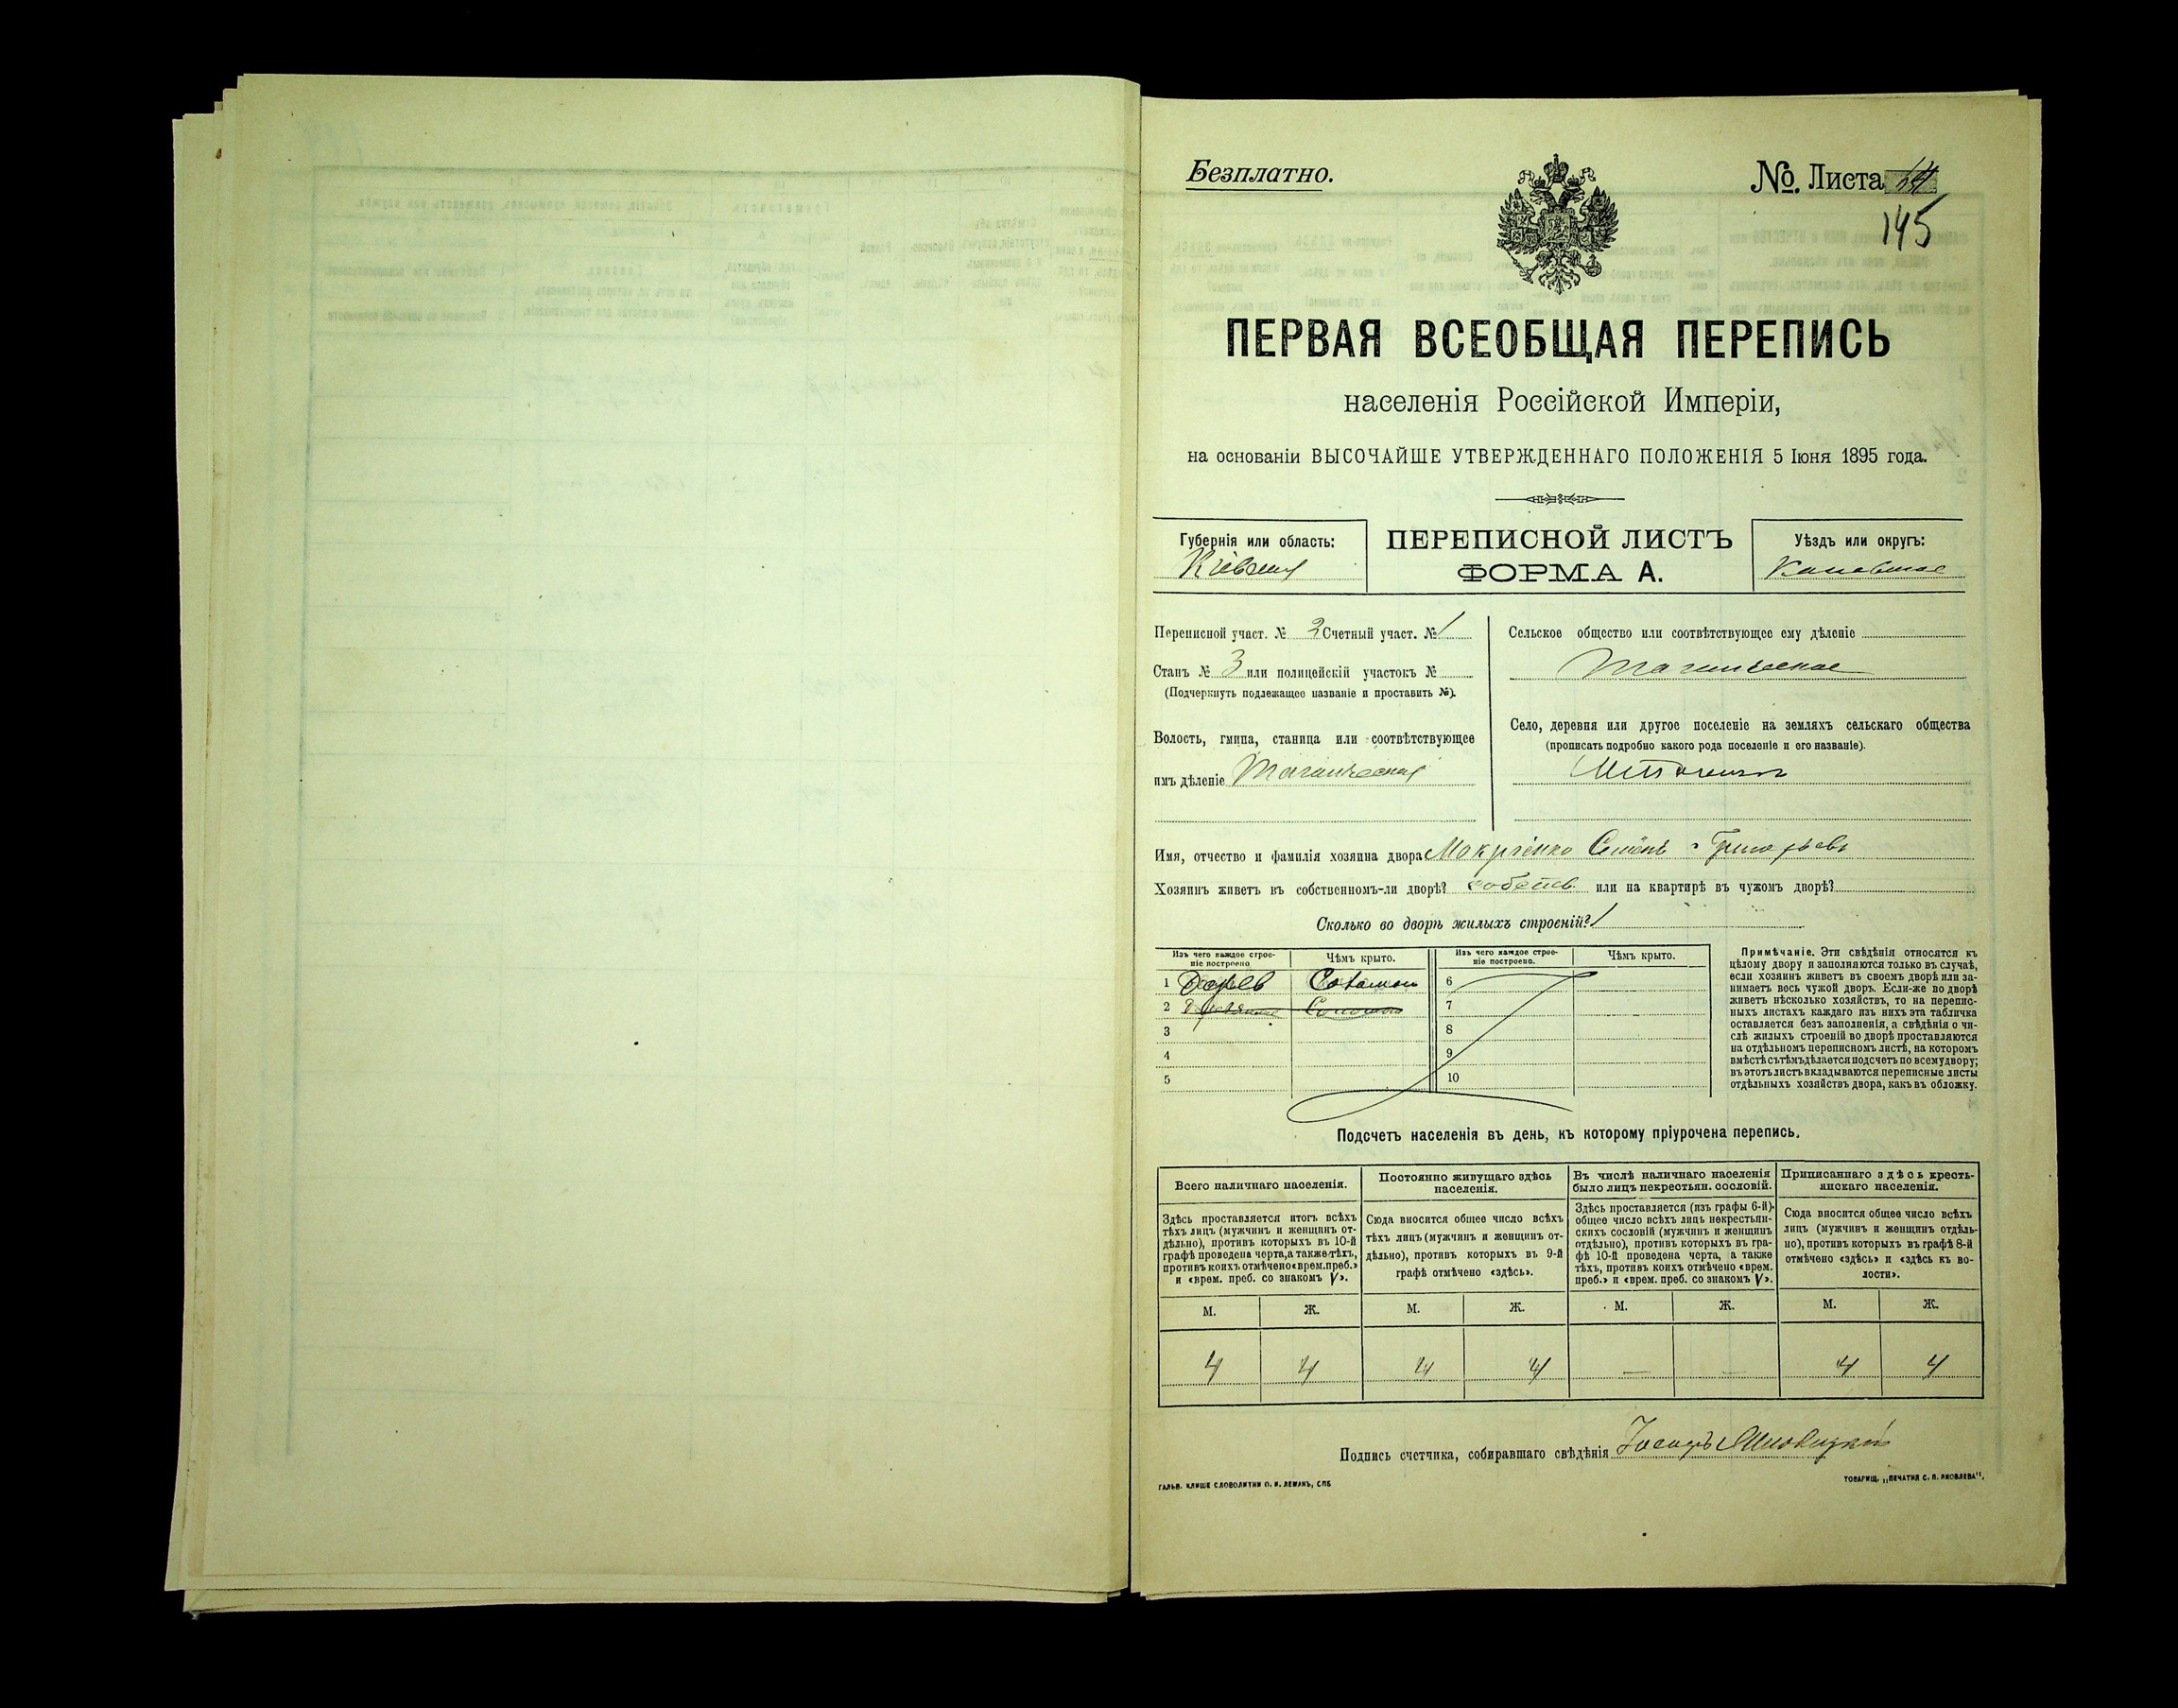 Безплатно.
№. Листа 14
145
ПЕРВАЯ ВСЕОБЩАЯ ПЕРЕПИСЬ
населенія Россійской Имперіи,
на основаніи ВЫСОЧАЙШЕ УТВЕРЖДЕННАГО ПОЛОЖЕНІЯ 5 Іюня 1895 года.
Губернія или область:
Кіевская
ПЕРЕПИСНОЙ ЛИСТЪ
ФОРМА А.
Уѣздъ или округъ:
Каневскій
Переписной участ. № 2 Счетный участ. № 1
Станъ № 3 или полицейскій участокъ №
(Подчеркнуть подлежащее названіе и проставить №).
Волость, гмина, станица или соотвѣтствующее
имъ дѣленіе
Сельское общество или соотвѣтствующее ему дѣленіе
Село, деревня или другое поселеніе на земляхъ сельскаго общества
(прописать подробно какого рода поселеніе и его названіе).
Имя, отчество и фамилія хозяина двора Григорьевъ
Хозяинъ живетъ въ собственномъ-ли дворѣ? собств. или на квартирѣ въ чужомъ дворѣ?
Сколько во дворѣ жилыхъ строеній? 1
Изъ чего каждое строе-
ніе построено
Чѣмъ крыто.
Изъ чего каждое строе-
ніе построено.
Чѣмъ крыто.
1 Дерев Соломою 6
2 Деревянное Соломою 7
3 8
4 9
5 10
Примѣчаніе. Эти свѣдѣнія относятся къ
цѣлому двору и заполняются только въ случаѣ,
если хозяинъ живетъ въ своемъ дворѣ или за-
нимаетъ весь чужой дворъ. Если-же во дворѣ
живетъ нѣсколько хозяйствъ, то на перепис-
ныхъ листахъ каждаго изъ нихъ эта табличка
оставляется безъ заполненія, а свѣдѣнія о чи-
слѣ жилыхъ строеній во дворѣ проставляются
на отдѣльномъ переписномъ листѣ, на которомъ
вмѣстѣ съ тѣмъ дѣлается подсчетъ по всему двору;
въ этотъ листъ вкладываются переписные листы
отдѣльныхъ хозяйствъ двора, какъ въ обложку.
Подсчетъ населенія въ день, къ которому пріурочена перепись.
Всего наличнаго населенія.
Здѣсь проставляется итогъ всѣхъ
тѣхъ лицъ (мужчинъ и женщинъ от-
дѣльно), противъ которыхъ въ 10-й
графѣ проведена черта, а также тѣхъ,
противъ коихъ отмѣчено «врем. преб.»
и «врем. преб. со знакомъ V».
Постоянно живущаго здѣсь
населенія.
Сюда вносится общее число всѣхъ
тѣхъ лицъ (мужчинъ и женщинъ от-
дѣльно), противъ которыхъ въ 9-й
графѣ отмѣчено «здѣсь».
Въ числѣ наличнаго населенія
было лицъ некрестьян. сословій.
Здѣсь проставляется (изъ графы 6-й)
общее число всѣхъ лицъ некрестьян-
скихъ сословій (мужчинъ и женщинъ
отдѣльно), противъ которыхъ въ гра-
фѣ 10-й проведена черта, а также
тѣхъ, противъ коихъ отмѣчено «врем.
преб.» и «врем. преб. со знакомъ V».
Приписаннаго здѣсь кресть-
янскаго населенія.
Сюда вносится общее число всѣхъ
лицъ (мужчинъ и женщинъ отдѣль-
но), противъ которыхъ въ графѣ 8-й
отмѣчено «здѣсь» и «здѣсь къ во-
лости».
М. Ж. М. Ж. М. Ж. М. Ж.
4 4 4 4 — — 4 4
Подпись счетчика, собиравшаго свѣдѣнія Іосифъ
ГАЛЬВ. КЛИШЕ СЛОВОЛИТНИ О. И. ЛЕМАНЪ, СПБ
ТОВАРИЩ. „ПЕЧАТНЯ С. П. ЯКОВЛЕВА",